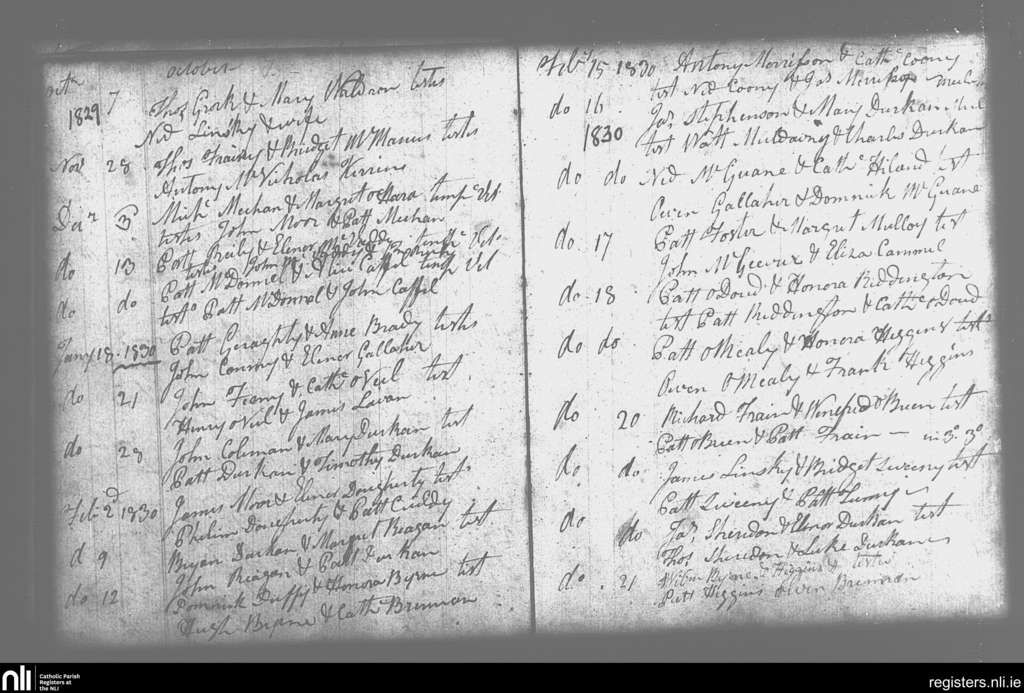 october
1829 7 Thos Gork & Mary Waldron tests
Ned Linsky & wife
Nov 28 Thos Frainy & Bridget McManus tests
Antony McNicholas Kirrins
3 Michl Meehan & Margret oHara
tests John Moor & Patt Meehan
do 13 Patt Reily & Elenor
tests John
do do Patt McDonnel &
testo Patt McDonnel & John Caffil
Jany 18. 1830 Patt Geraghty & Anne Brady tests
John Conroy & Elinor Gallaher
do 21 John Feany & Cathe oNeil test
Henry oNeil & James
do 28 John Coleman & Mary Durkan test
Patt Durkan & Timothy Durkan
Feb 2d 1830 James Moor & Elinor Dougherty tests
Phelim Dougherty & Patt Cuddy
d 9 Bryan Durkan & Margret Reagan test
John Reagan & Patt Durkan
do 12 Domnick Duffy & Honora Byrne test
Hugh Byrne & Cath Brennan
Feby 15 1830 Antony Morrisson & Cathe Coony
test Ned Coony & Jas Morrisson
do 16 Jas Stephenson & Mary Durkan
1830 test Watt Muldawny & Charles Durkan
do do Ned McGuane & Cathe Hiland test
Owen Gallaher & Domnick McGuane
do 17 Patt Foster & Margret Mulloy test
John & Eliza Cammel
do 18 Patt oDoud & Honora Riddington
test Patt Riddington & Cathe oDoud
do do Patt oMealy & Honora Higgins test
Owen OMealy & Frank Higgins
do 20 Richard Frain & Winefrid OBrien test
Patt OBrien & Patt Frain — in 3o. 3o
do do James Linsky & Bridget Sweeny test
Patt Sweeny & Patt
do do Jas Sheridon & Elnor Durkan test
Thos Sheridon & Luke Durkan
do . 21 Willm Byrne & Higgins & tests
Patt Higgins Owen Brennan
nli
Catholic Parish
Registers at
the NLI
registers.nli.ie